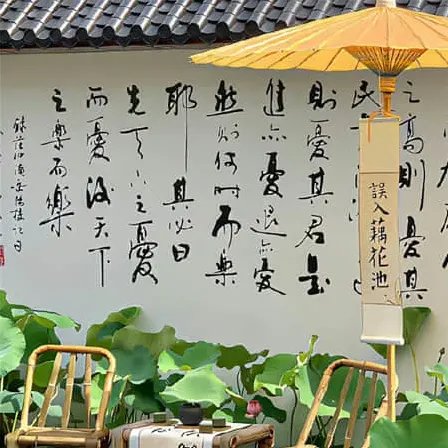 之高則憂其
民
則憂其君是
進亦憂退亦憂
然則何時而樂
耶其必曰
先天下之憂
而憂後天下
之樂而樂
錄范仲淹岳陽樓記
誤入藕花池